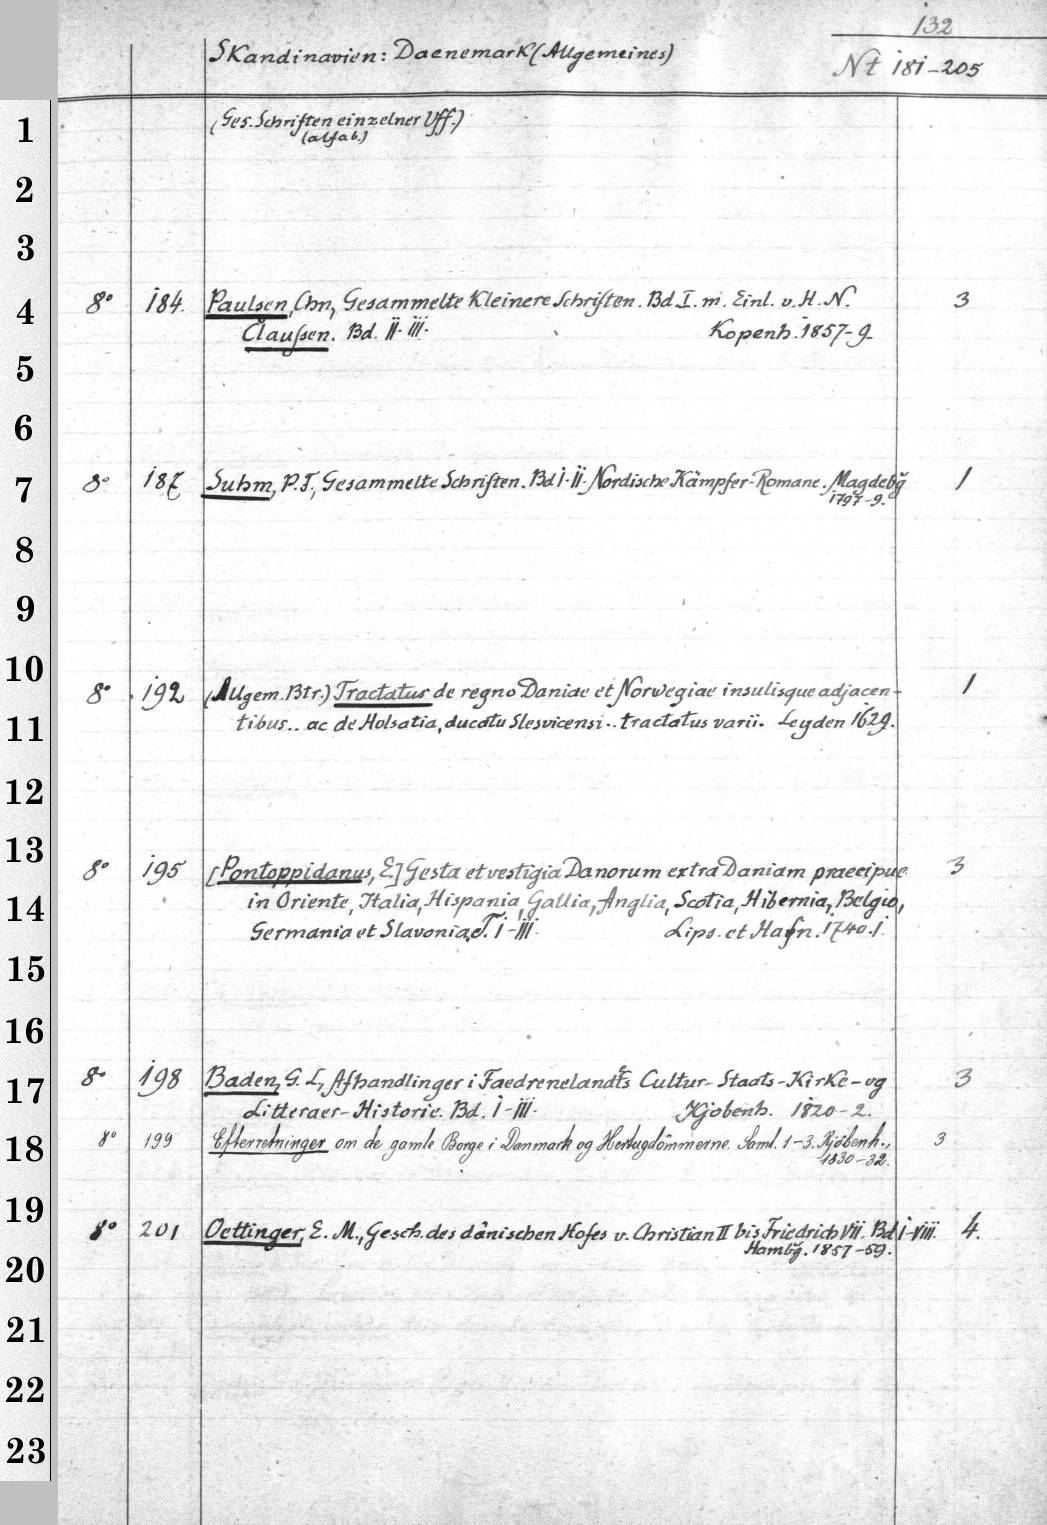 132
Skandinavien: Daenemark (Allgemeines)
Nt 181-205
(Ges. Schriften einzelner Vff.)
(alfab.)
1
2
3
4
5
6
7
8
9
10
11
12
13
14
15
16
17
18
19
20
21
22
23
8° 184. Paulsen, Chn, Gesammelte Kleinere Schriften. Bd I. m. Einl. v. H. N. 3
Claußen. Bd. II. III. Kopenh. 1857-9.
8° 187 Suhm, P. F., Gesammelte Schriften. Bd I. II. Nordische Kämpfer-Romane. Magdebg 1
1797-9.
8° 192 (Allgem. Btr.) Tractatus de regno Daniae et Norwegiae insulisque adjacen- 1
tibus.. ac de Holsatia, ducatu Slesvicensi.. tractatus varii. Leyden 1629.
8° 195 [Pontoppidanus, E.] Gesta et vestigia Danorum extra Daniam praecipue 3
in Oriente, Italia, Hispania, Gallia, Anglia, Scotia, Hibernia, Belgio,
Germania et Slavonia. T. I-III. Lips. et Hafn. 1740. 1.
8° 198 Baden, G. L, Afhandlinger i Faedrenelandets Cultur- Staats-Kirke- og 3
Litteraer-Historie. Bd. I-III. Kjobenh. 1820-2.
8° 199 Efterretninger om de gamle Borge i Danmark og Hertugdömmerne. Saml. 1-3. Kjöbenh., 3
1830-32.
8° 201 Oettinger, E. M., Gesch. des dänischen Hofes v. Christian II bis Friedrich VII. Bd I-VIII. 4.
Hambg. 1857-59.